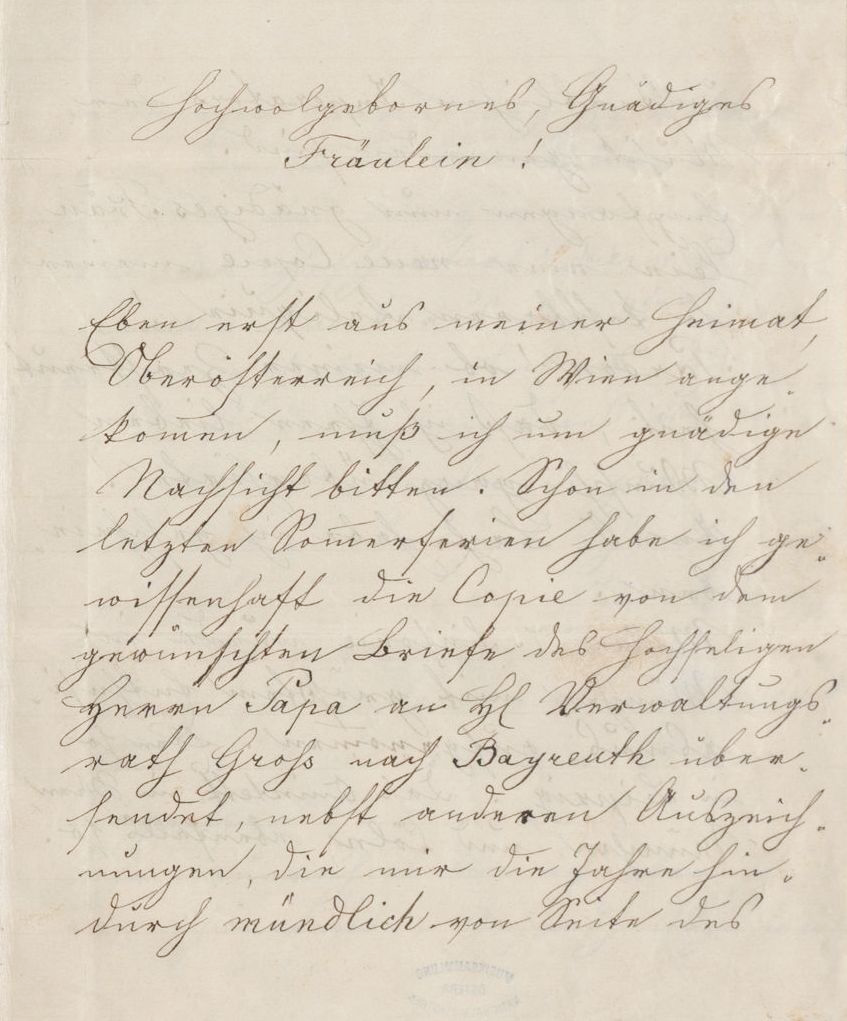 Hochwolgebornes, Gnädiges
Fräulein!
Eben erst aus meiner Heimat,
Oberösterreich, in Wien ange-
kom̅en, muß ich um gnädige
Nachsicht bitten. Schon in den
letzten Som̅erferien habe ich ge-
wissenhaft die Copie von dem
gewünschten Briefe des Hochseligen
Herrn Papa an H̲ Verwaltungs-
rath Groß nach Bayreuth über-
sendet, nebst anderen Auszeich-
nungen, die mir die Jahre hin-
durch mündlich von Seite des